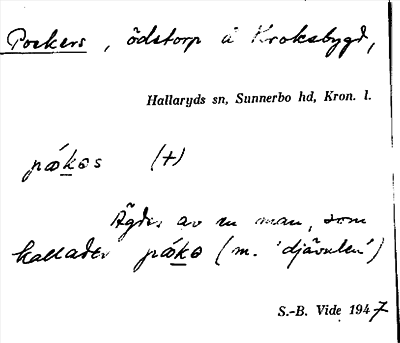 Pockers, ödstorp å Kroksbygd,
Hallaryds sn, Sunnerbo hd, Kron. l.
pǿkəs (+)
Ägdes av en man, som
kallades pǿkə (m. 'djävulen')
S.-B. Vide 1947